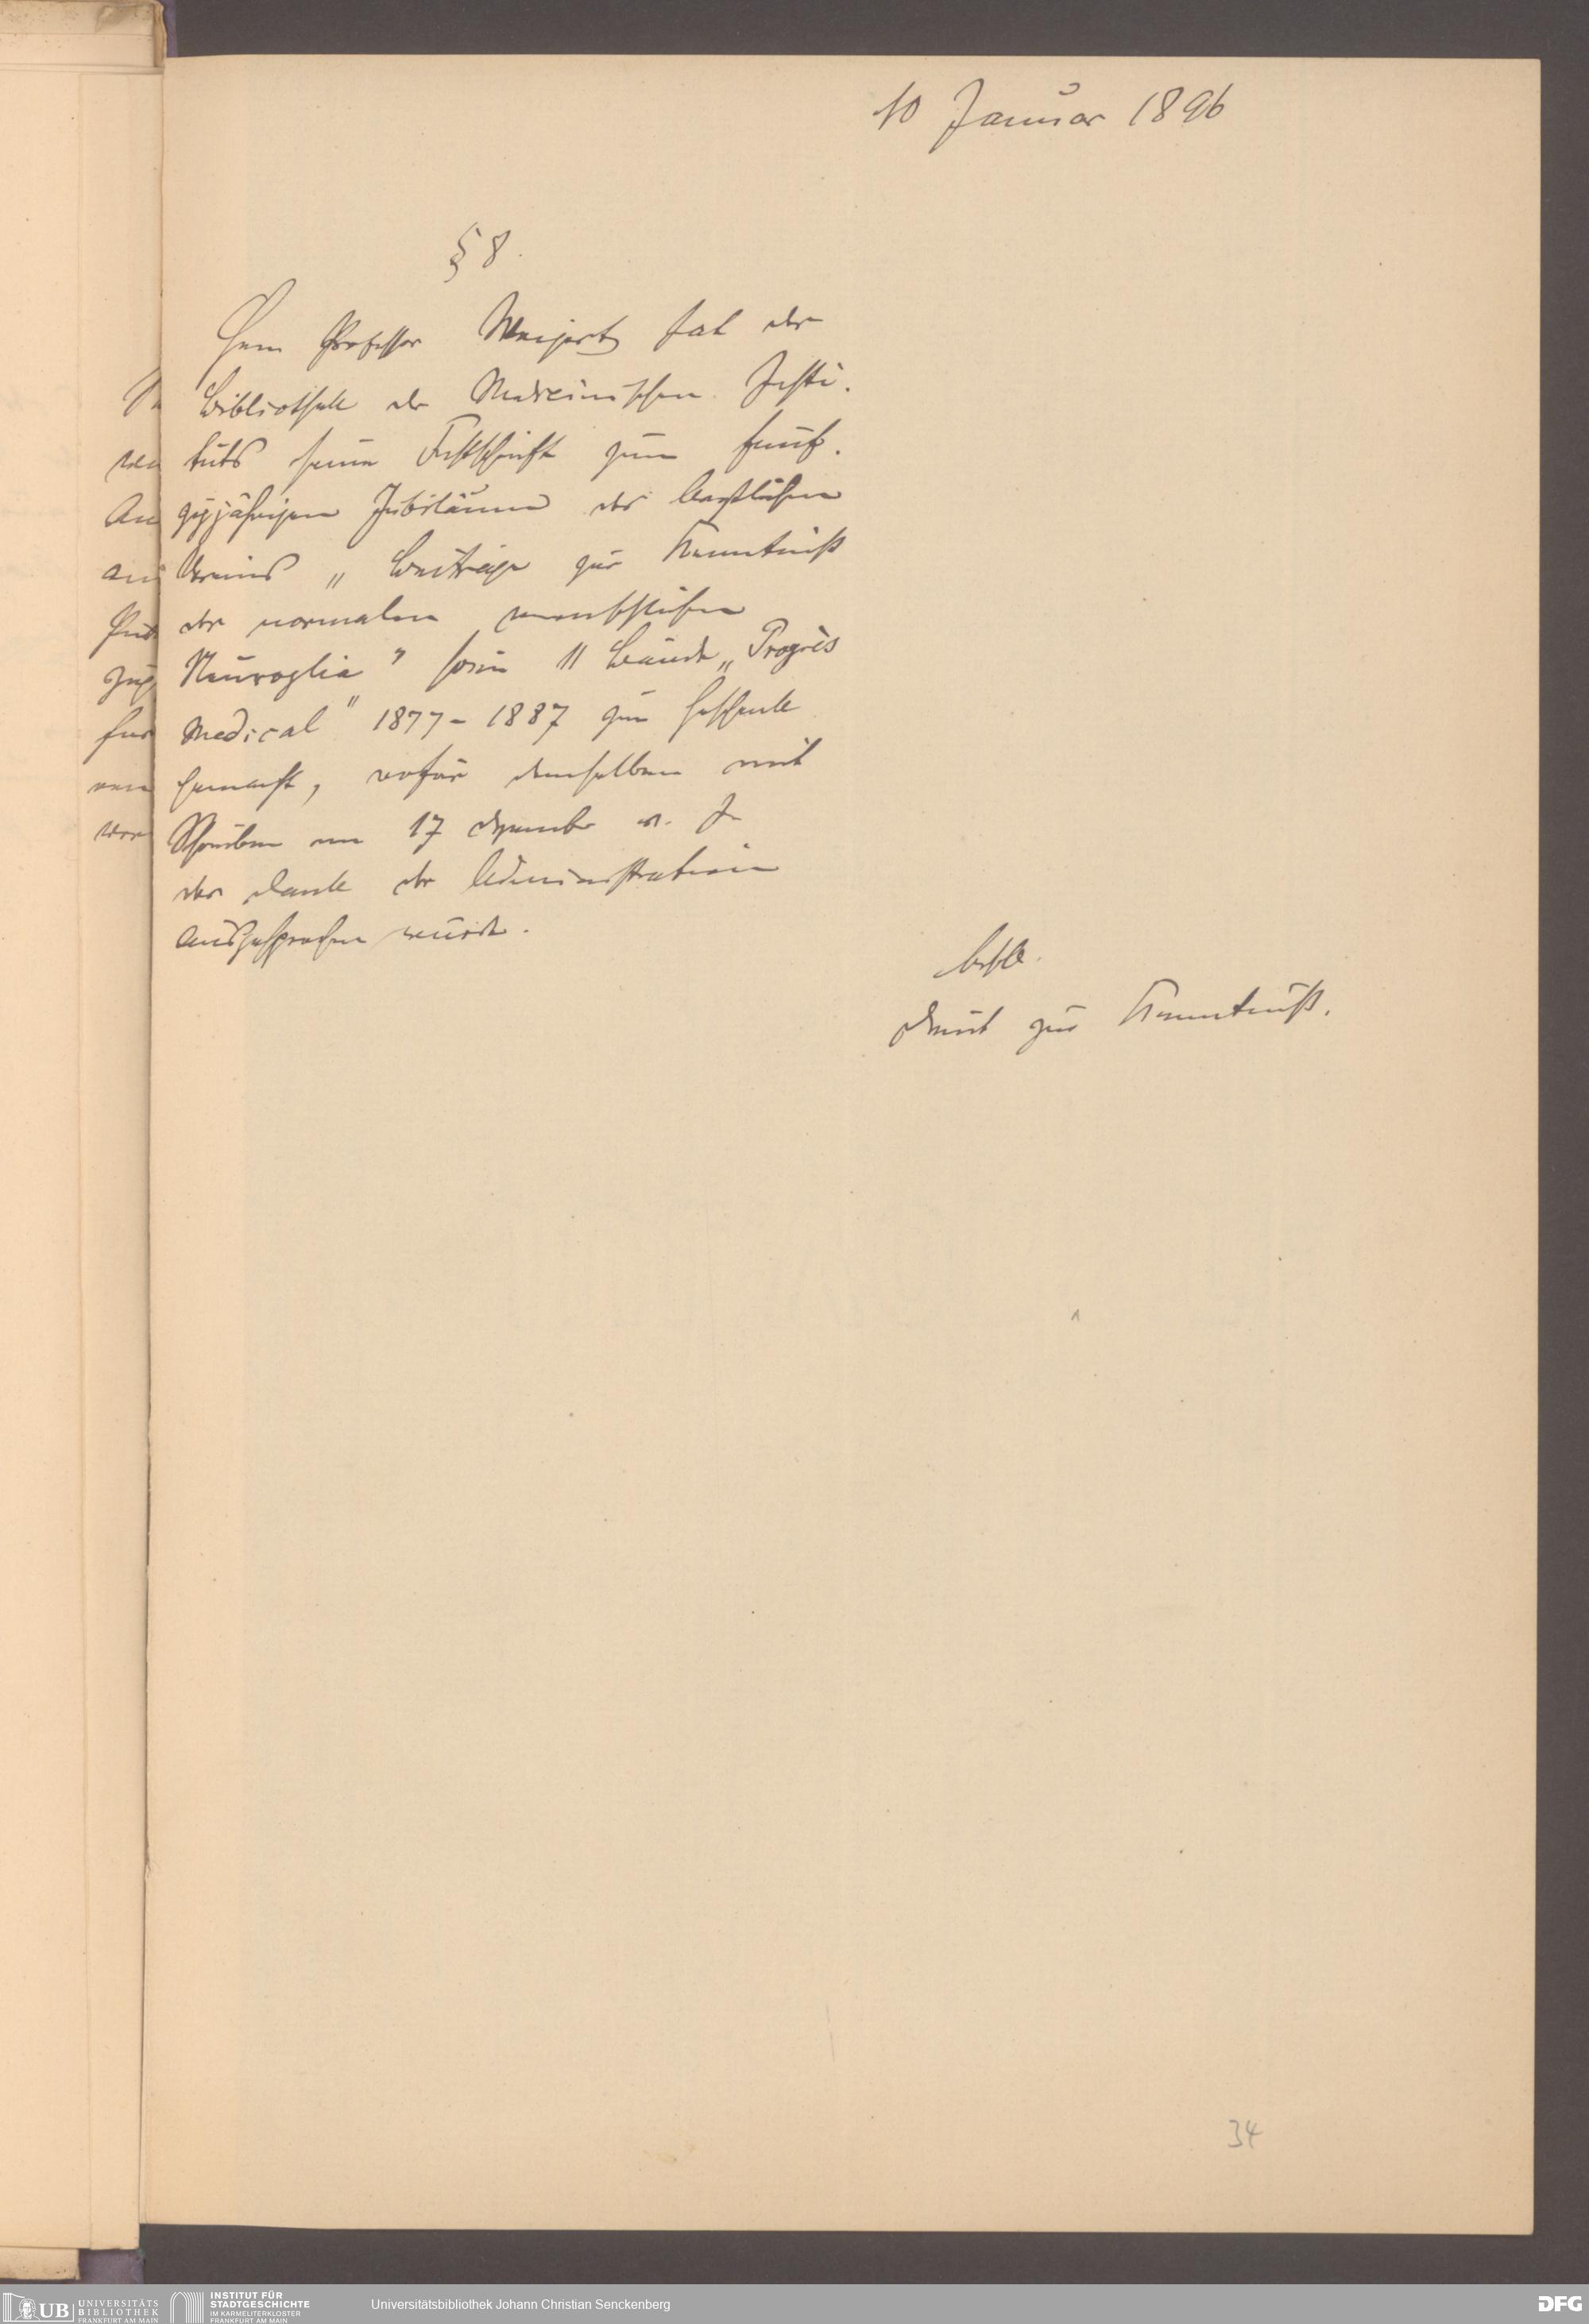 10 Januar 1896
§ 8.
Herr Professor Weigert hat der
Bibliothek des Medicinischen Insti-
tuts seine Festschrift zum fünf-
zigjährigen Jubiläum des Ärztlichen
Vereins „Beiträge zur Kenntniß
der normalen menschlichen
Neuroglia" sowie 11 Bände „Progrès
Medical" 1877-1887 zum Geschenk
gemacht, wofür demselben mit
Schreiben vom 17 Dezember v. J.
der Dank der Administration
ausgesprochen wurde.
Beschl.
Dient zur Kenntniß.
34
UB UNIVERSITÄTS
BIBLIOTHEK
FRANKFURT AM MAIN
INSTITUT FÜR
STADTGESCHICHTE
IM KARMELITERKLOSTER
FRANKFURT AM MAIN
Universitätsbibliothek Johann Christian Senckenberg
DFG